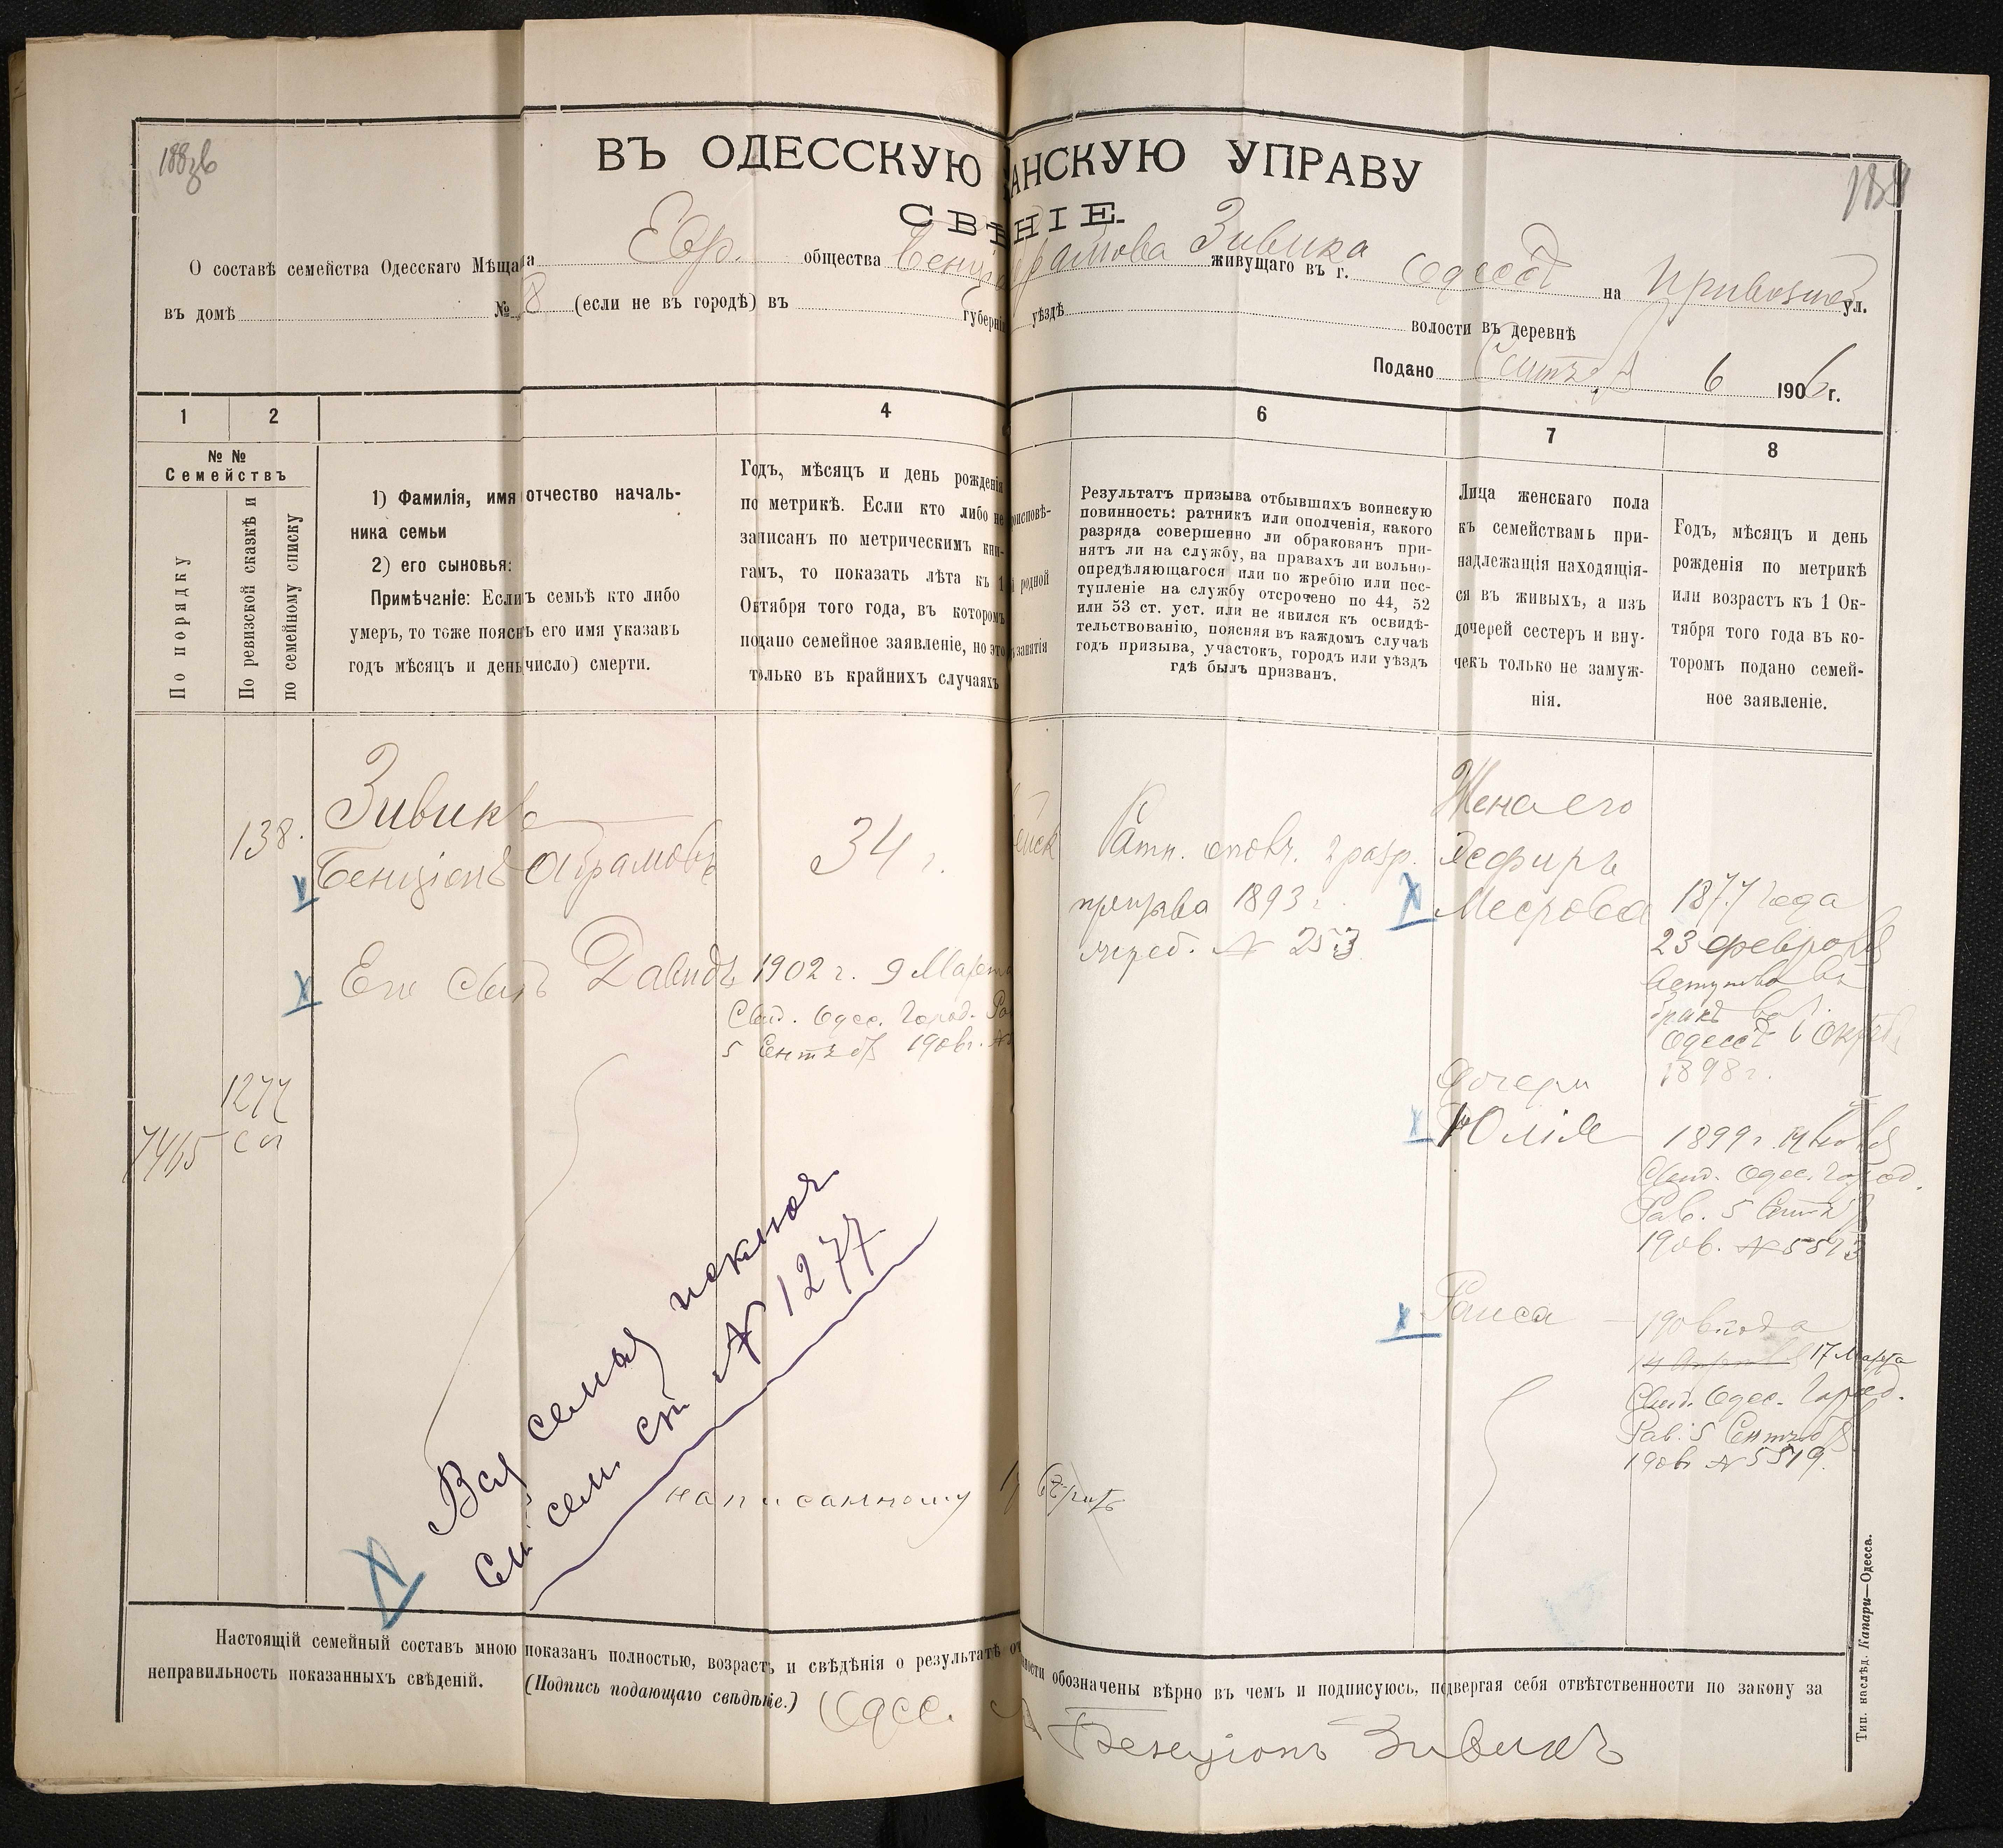 188об
188
ВЪ ОДЕССКУЮ АНСКУЮ УПРАВУ
СВѢ НІЕ.
О составѣ семейства Одесскаго Мѣща а Евр. общества Бенціо рамова Зивика живущаго въ г. Одессѣ на Привозной ул.
въ домѣ № 8 (если не въ городѣ) въ губерні уѣздѣ волости въ деревнѣ
Подано Сентября 6 1906 г.
1 2 4 6 7 8
№ №
Семействъ
По порядку
По ревизской сказкѣ и
по семейному списку
1) Фамилія, имя отчество началь-
ника семьи
2) его сыновья:
Примѣчаніе: Если ъ семьѣ кто либо
умеръ, то тоже поясн ь его имя указавъ
годъ мѣсяцъ и день число) смерти.
Годъ, мѣсяцъ и день рожденія
по метрикѣ. Если кто либо не
записанъ по метрическимъ кни-
гамъ, то показать лѣта къ 1
Октября того года, въ которомъ
подано семейное заявленіе, но это
только въ крайнихъ случаяхъ
роисповѣ-
й родной
занятія
Результатъ призыва отбывшихъ воинскую
повинность: ратникъ или ополченія, какого
разряда совершенно ли обракованъ при-
нятъ ли на службу, на правахъ ли вольно-
опредѣляющагося или по жребію или пос-
тупленіе на службу отсрочено по 44, 52
или 53 ст. уст. или не явился къ освидѣ-
тельствованію, поясняя въ каждомъ случаѣ
годъ призыва, участокъ, городъ или уѣздъ
гдѣ былъ призванъ.
Лица женскаго пола
къ семействамъ при-
надлежащія находящія-
ся въ живыхъ, а изъ
дочерей сестеръ и вну-
чекъ только не замуж-
нія.
Годъ, мѣсяцъ и день
рожденія по метрикѣ
или возрастъ къ 1 Ок-
тября того года въ ко-
торомъ подано семей-
ное заявленіе.
138.
Зивикъ
Бенціонъ Абрамовъ
34 г.
Ратн. ополч. 2 разр.
призыва 1893 г.
жреб. № 253
Жена его
Эсфирь
Меерова
1877 года
23 февраля
вступила въ
бракъ въ г.
Одессѣ 6 Октяб.
1898 г.
Его сынъ Давидъ
1902 г. 9 Марта
Свид. Одес. Город. Ра
5 Сентяб 1906 г. №
1277
сп
7465
Дочери
Юлія
1899 г.
Свид. Одес. Город.
Рав. 5 Сентяб
1906. № 5573
Раиса
1906 года
14 Апрѣля 17 Марта
Свид. Одес. Город.
Рав. 5 Сентяб
1906 № 5519.
Вся семья исключ.
См. сем. сп. № 1277
написанному вѣрить
Настоящій семейный составъ мною показанъ полностью, возрастъ и свѣдѣнія о результатѣ от ности обозначены вѣрно въ чемъ и подписуюсь, подвергая себя отвѣтственности по закону за
неправильность показанныхъ свѣдѣній. (Подпись подающаго свѣдѣніе.) Одес. Бенціонъ Зивикъ
Тип. наслѣд. Капари—Одесса.